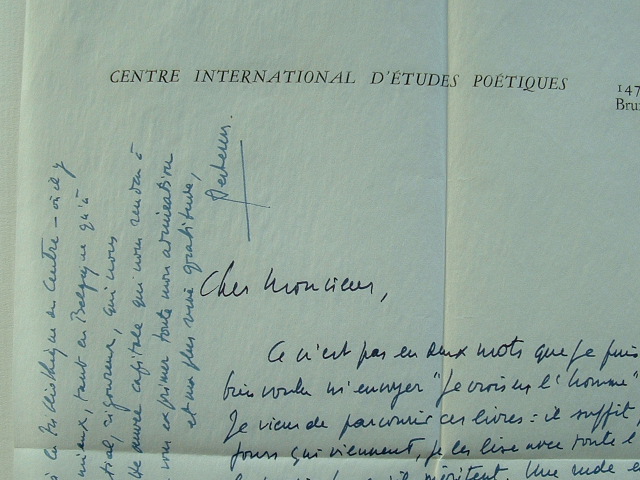 CENTRE INTERNATIONAL D'ÉTUDES POÉTIQUES
147
Bru
Cher Monsieur,
Ce n'est pas en deux mots que je puis
bien voulu m'envoyer "Je crois en l'homme"
Je viens de parcourir ces livres : il suffit,
jours qui viennent, je les lise avec toute l'
qu'ils méritent. Une rude e
la bibliothèque du Centre — où il y
mieux, tant en Belgique qu'à
rigoureux, qui nous
œuvre capitale qui nous rendra à
vous exprimer toute mon admiration
et ma plus vive gratitude,